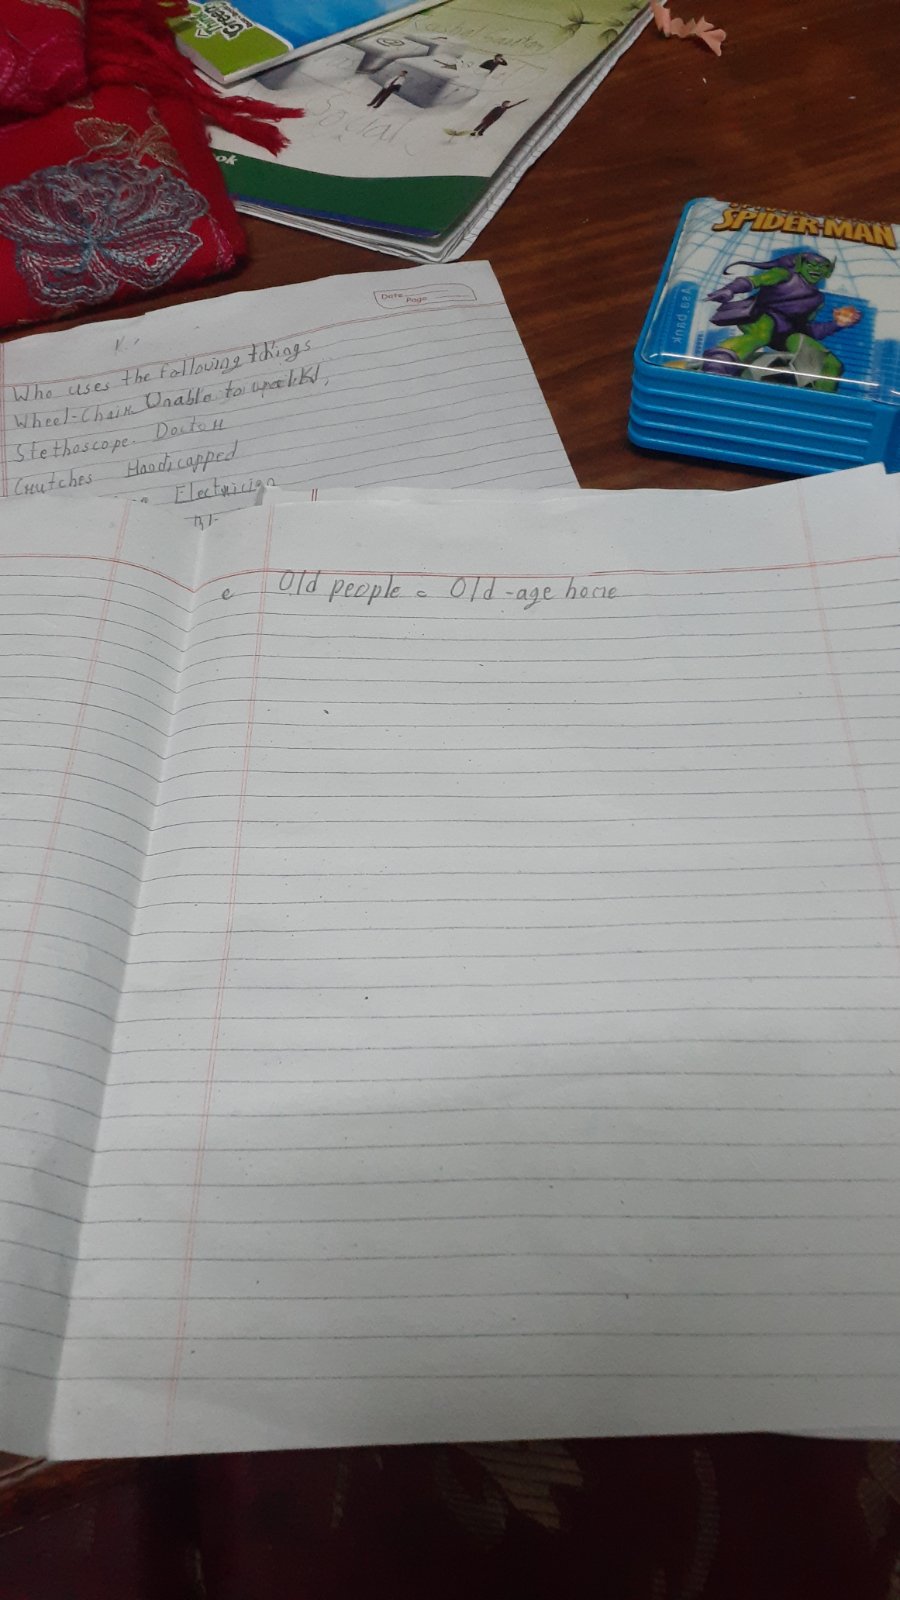 Green
Social
ok
SPIDER-MAN
Date
Page
Who uses the following things
Wheel-Chair Unable to
Stethoscope. Doctor
Crutches Handicapped
Electrician
e Old people = Old-age home